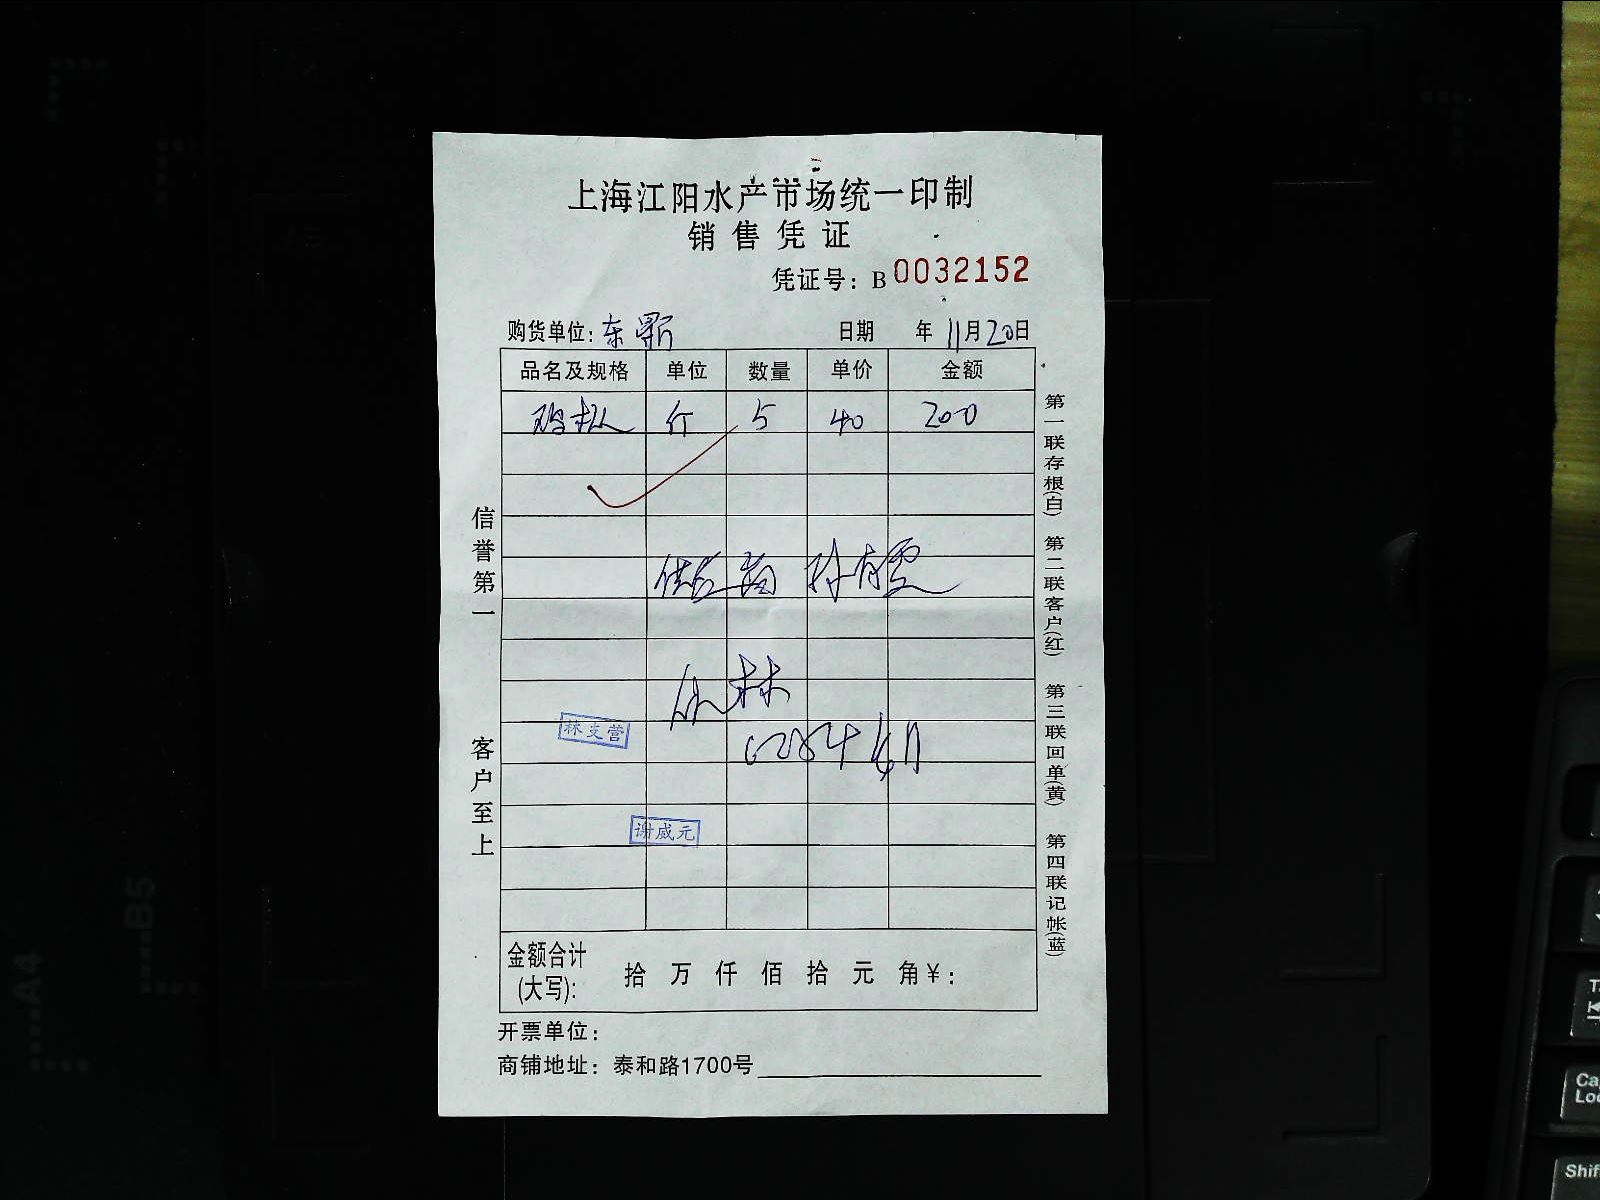 上海江阳水产市场统一印制
销售凭证
凭证号：B 0032152
购货单位：东
日期 年 11月20日
品名及规格 单位 数量 单价 金额
斤 5 40 200
林支营
谢威元
金额合计(大写)： 拾 万 仟 佰 拾 元 角 ￥：
开票单位：
商铺地址：泰和路1700号
信誉第一 客户至上
第一联存根(白) 第二联客户(红) 第三联回单(黄) 第四联记帐(蓝)
A4
B5
Shif